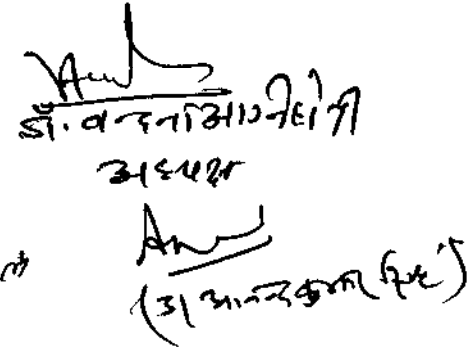 डॉ. वन्दना अग्निहोत्री
अध्यक्ष
(डॉ आनन्द कुमार सिंह)